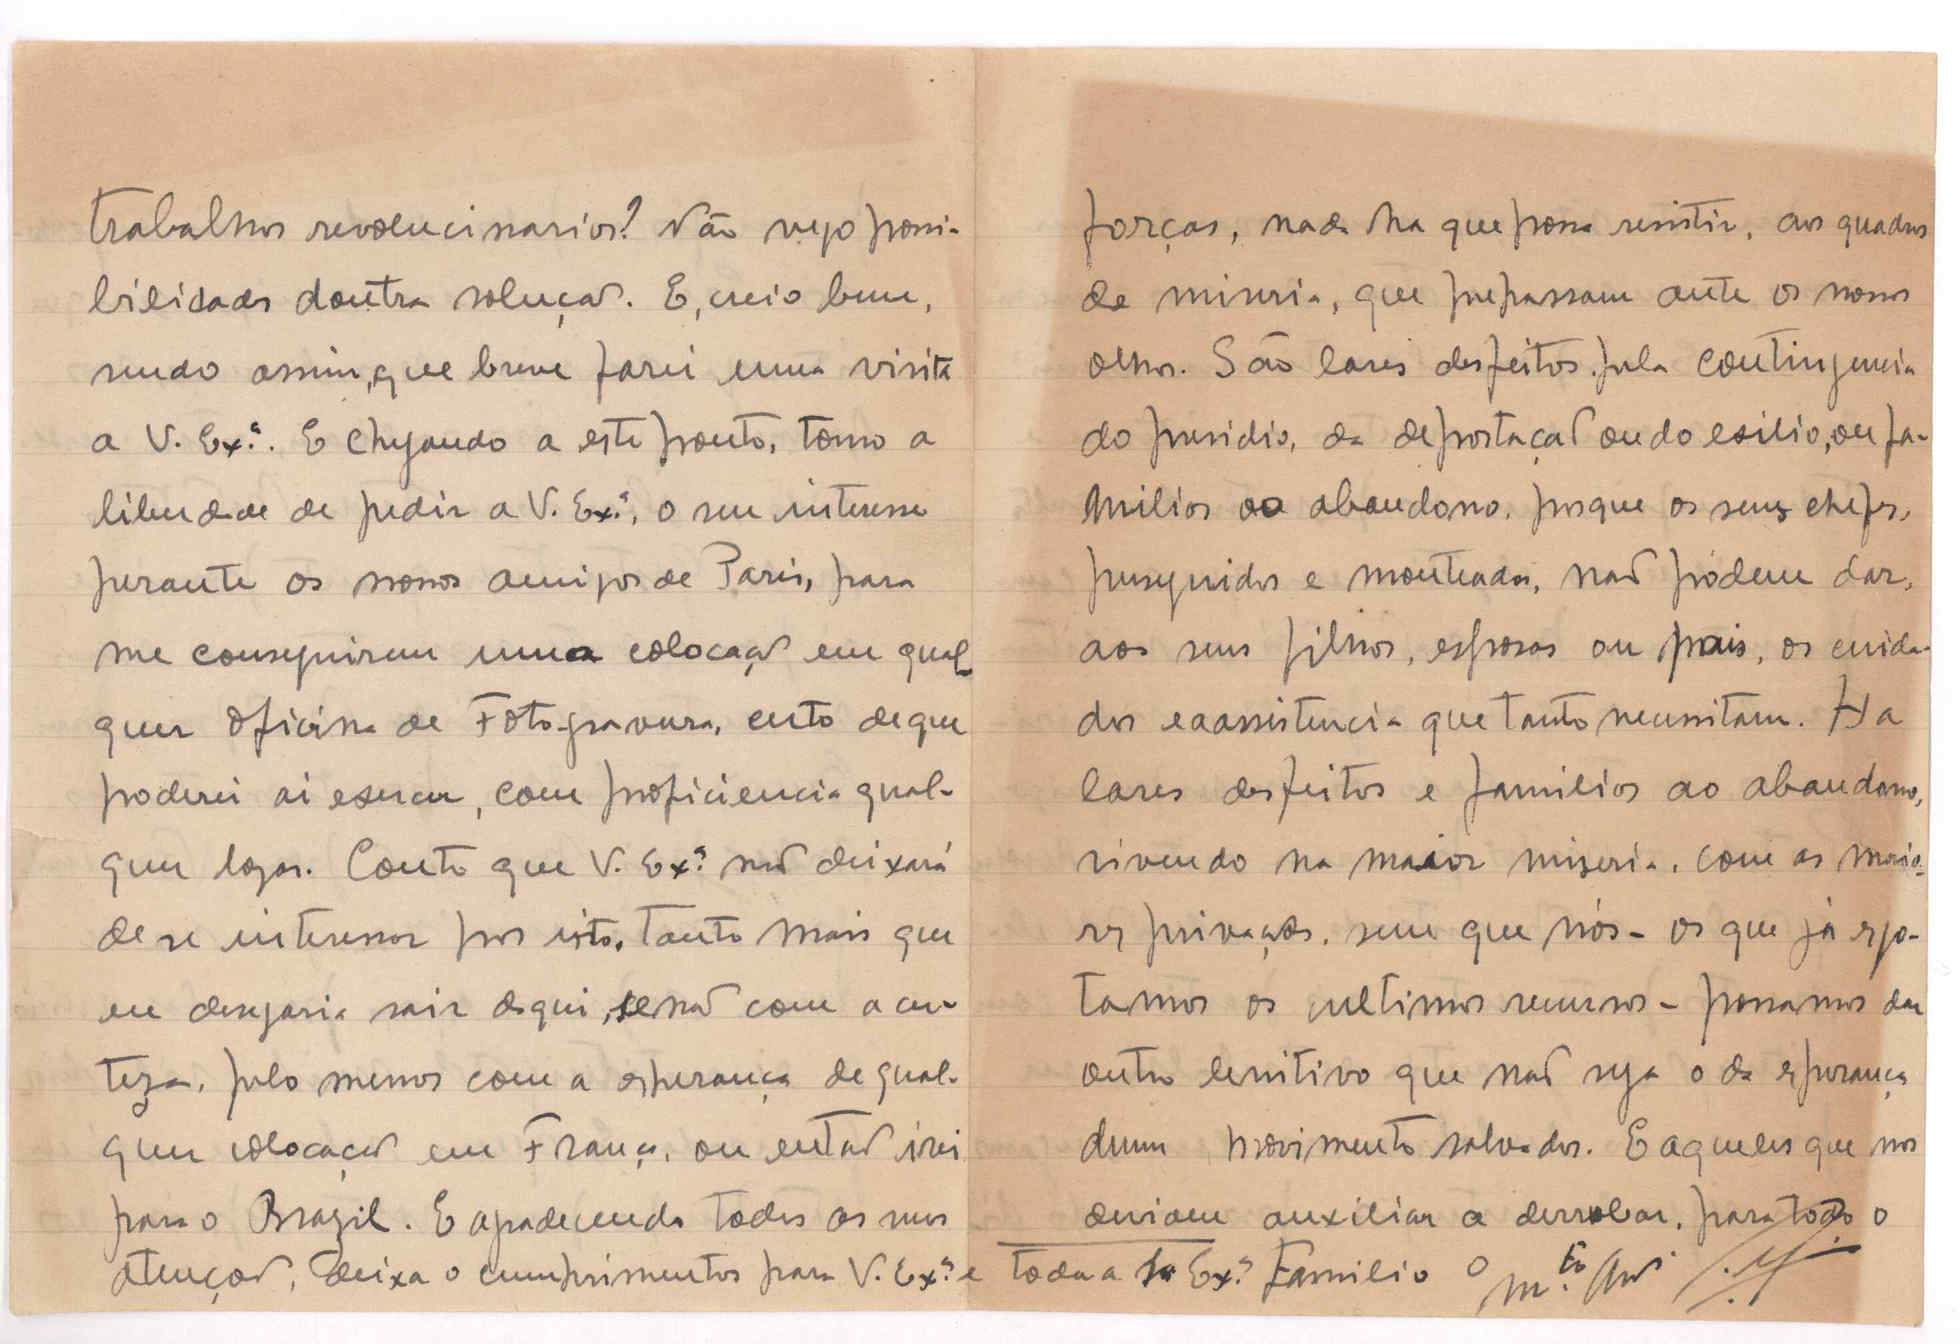 trabalhos revolucinarios? Não vejo possi-
bilidades doutra soluçaõ. E, creio bem,
sendo assim, que breve farei uma visita
a V. Exª. E chegando a este ponto, tomo a
liberdade de pedir a V. Exª, o seu interesse
perante os nossos amigos de Paris, para
me conseguirem uma colocaçaõ em qual
quer oficina de Fotogravura, certo de que
poderei ai exercer, com proficiencia qual-
quer logar. Conto que V. Exª naõ deixará
de se interessar por isto, tanto mais que
eu desejaria sair daqui, senaõ com a cer-
teza, pelo menos com a esperança de qual-
quer colocaçaõ em França, ou entaõ irei
para o Brazil. E agradecendo todas as suas
atençoẽs, deixa o cumprimentos para V. Exª e toda a Exª Familia o
forças, nada ha que possa resistir, aos quadros
de miseria, que prepassam ante os nossos
olhos. São lares desfeitos pela contingencia
do presidio, da deportaçaõ ou do exilio, ou fa-
milias ao abandono, porque os seus chefes,
perseguidos e monteados, naõ pódem dar,
aos seus filhos, esposas ou pais, os cuida-
dos e a assistencia que tanto necessitam. Ha
lares desfeitos e familias ao abandono,
vivendo na maior mizeria, com as maio-
res privações, sem que nós - os que já esgo-
tamos os ultimos recursos - possamos dar
outro lenitivo que naõ seja o da esperança
dum movimento salvador. E aqueles que nos
deviam auxiliar a derrubar, para todo o